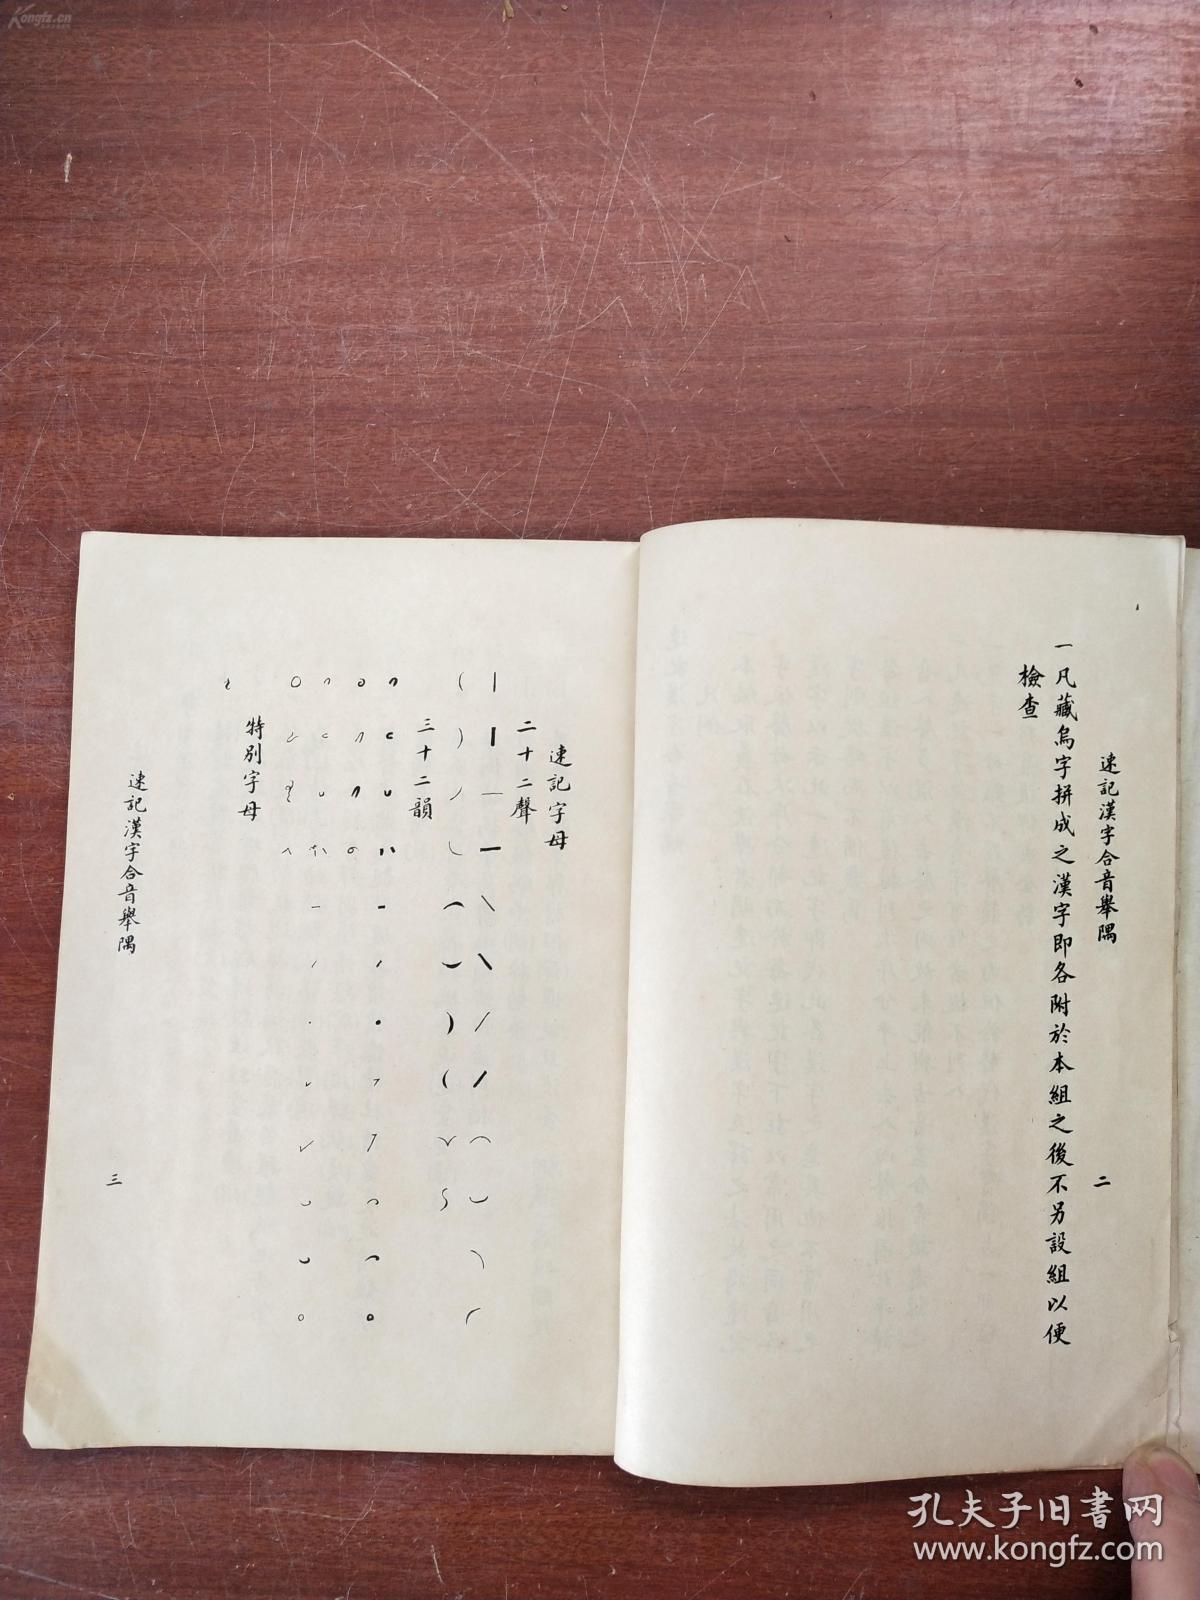 速記漢字合音舉隅
二
一凡藏爲字拼成之漢字即各附於本組之後不另設組以便
檢查
速記字母
二十二聲
三十二韻
特別字母
速記漢字合音舉隅
三
Kongfz.cn
孔夫子旧书网
www.kongfz.com